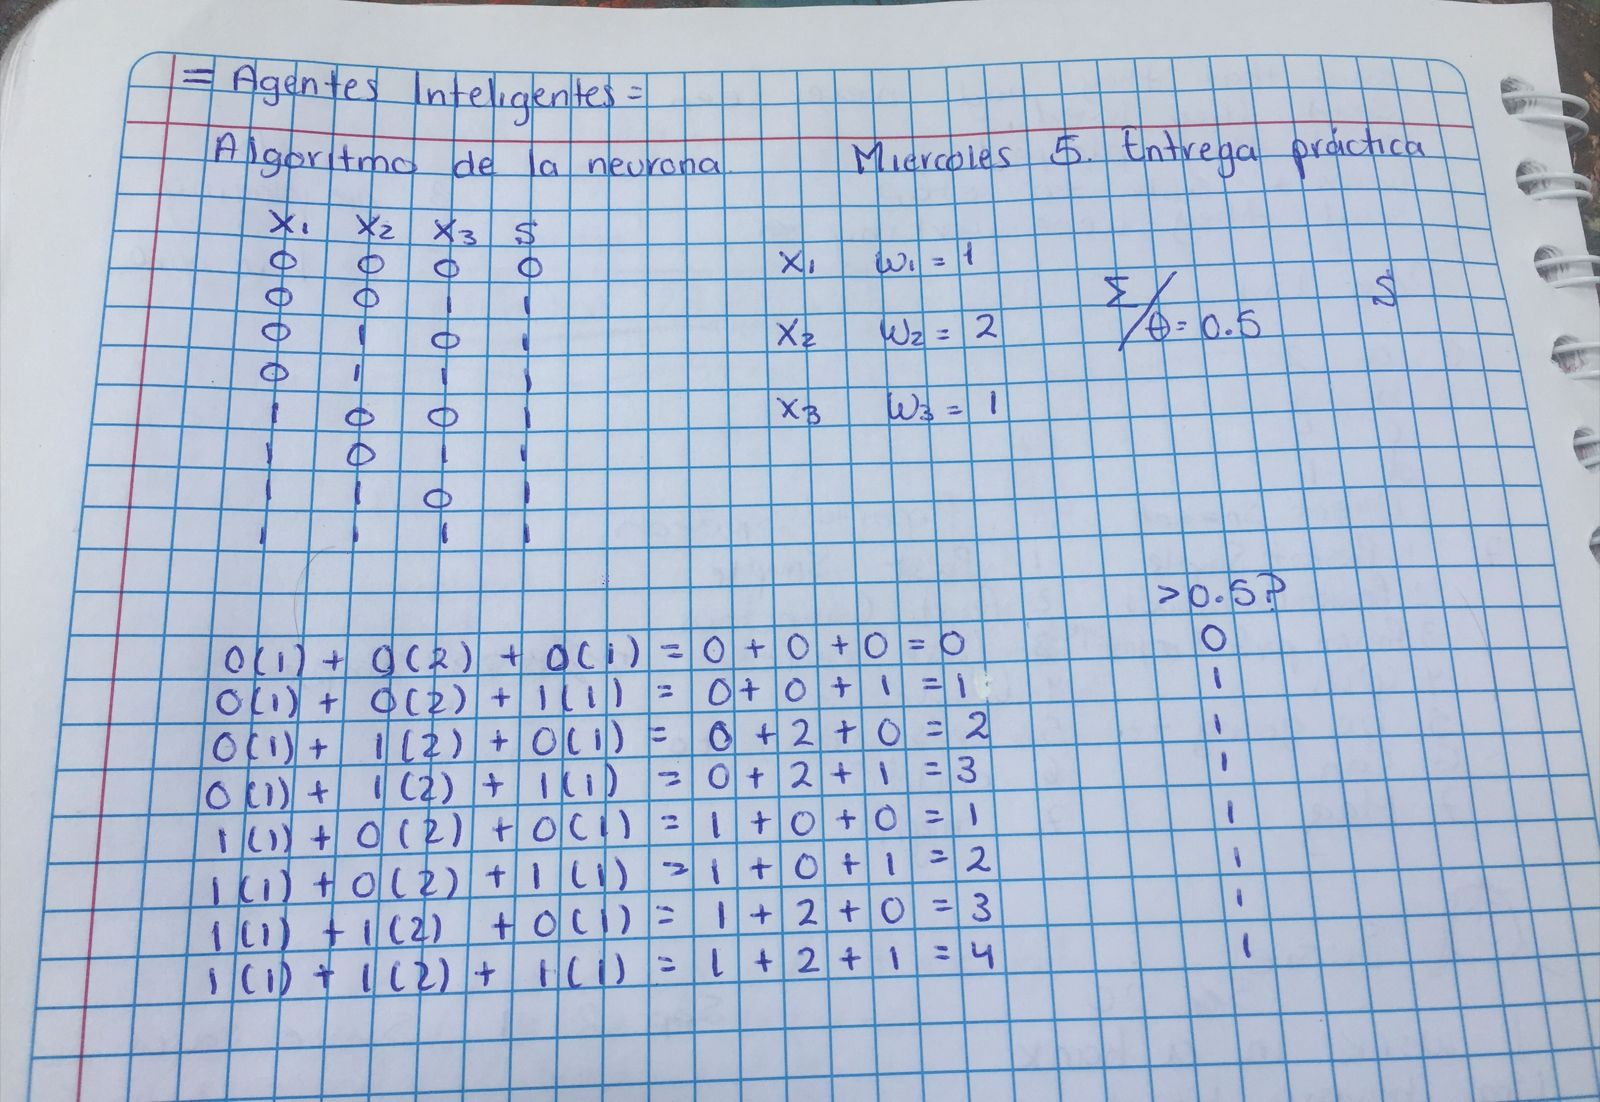 = Agentes Inteligentes =
Algoritmo de la neurona. Miercoles 5. Entrega práctica
X1 X2 X3 S
0 0 0 0
0 0 1 1
0 1 0 1
0 1 1 1
1 0 0 1
1 0 1 1
1 1 0 1
1 1 1 1
X1 W1 = 1
Σ / θ = 0.5 S
X2 W2 = 2
X3 W3 = 1
>0.5?
0(1) + 0(2) + 0(1) = 0 + 0 + 0 = 0 0
0(1) + 0(2) + 1(1) = 0 + 0 + 1 = 1 1
0(1) + 1(2) + 0(1) = 0 + 2 + 0 = 2 1
0(1) + 1(2) + 1(1) = 0 + 2 + 1 = 3 1
1(1) + 0(2) + 0(1) = 1 + 0 + 0 = 1 1
1(1) + 0(2) + 1(1) = 1 + 0 + 1 = 2 1
1(1) + 1(2) + 0(1) = 1 + 2 + 0 = 3 1
1(1) + 1(2) + 1(1) = 1 + 2 + 1 = 4 1